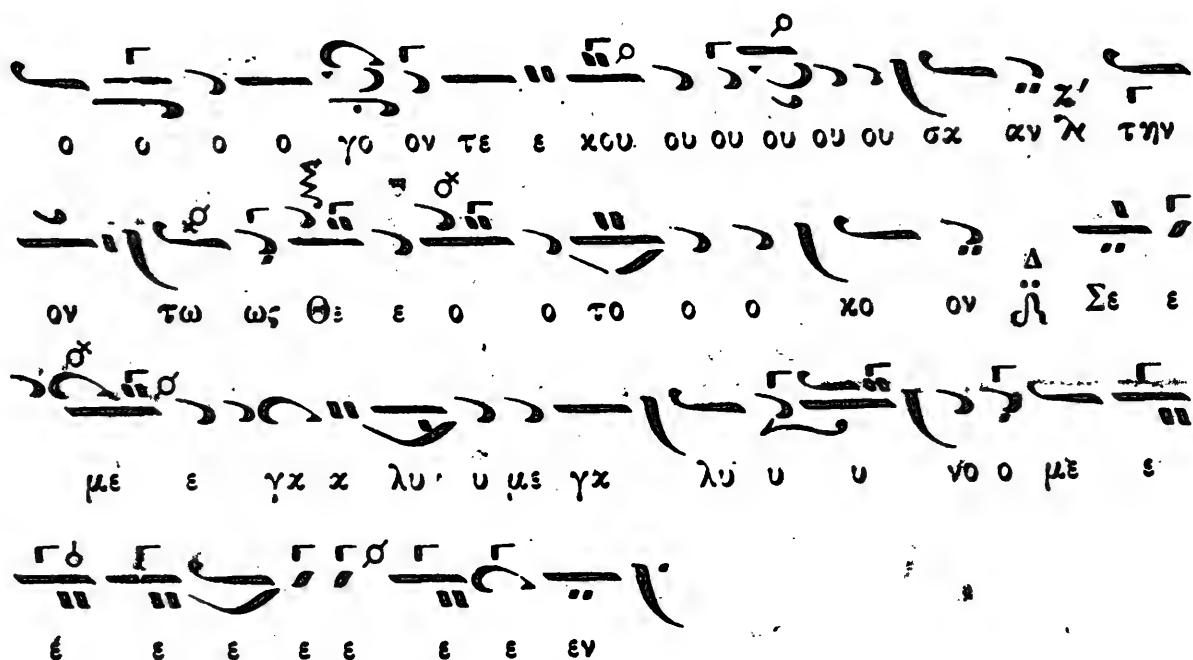 ο ο ο ο γο ον τε ε κου ου ου ου ου ου σα αν ζ' λ την
ον τω ως Θε ε ο ο το ο ο κο ον Δ Σε ε
με ε γα α λυ υ με γα λυ υ υ νο ο με ε
ε ε ε ε ε ε ε εν